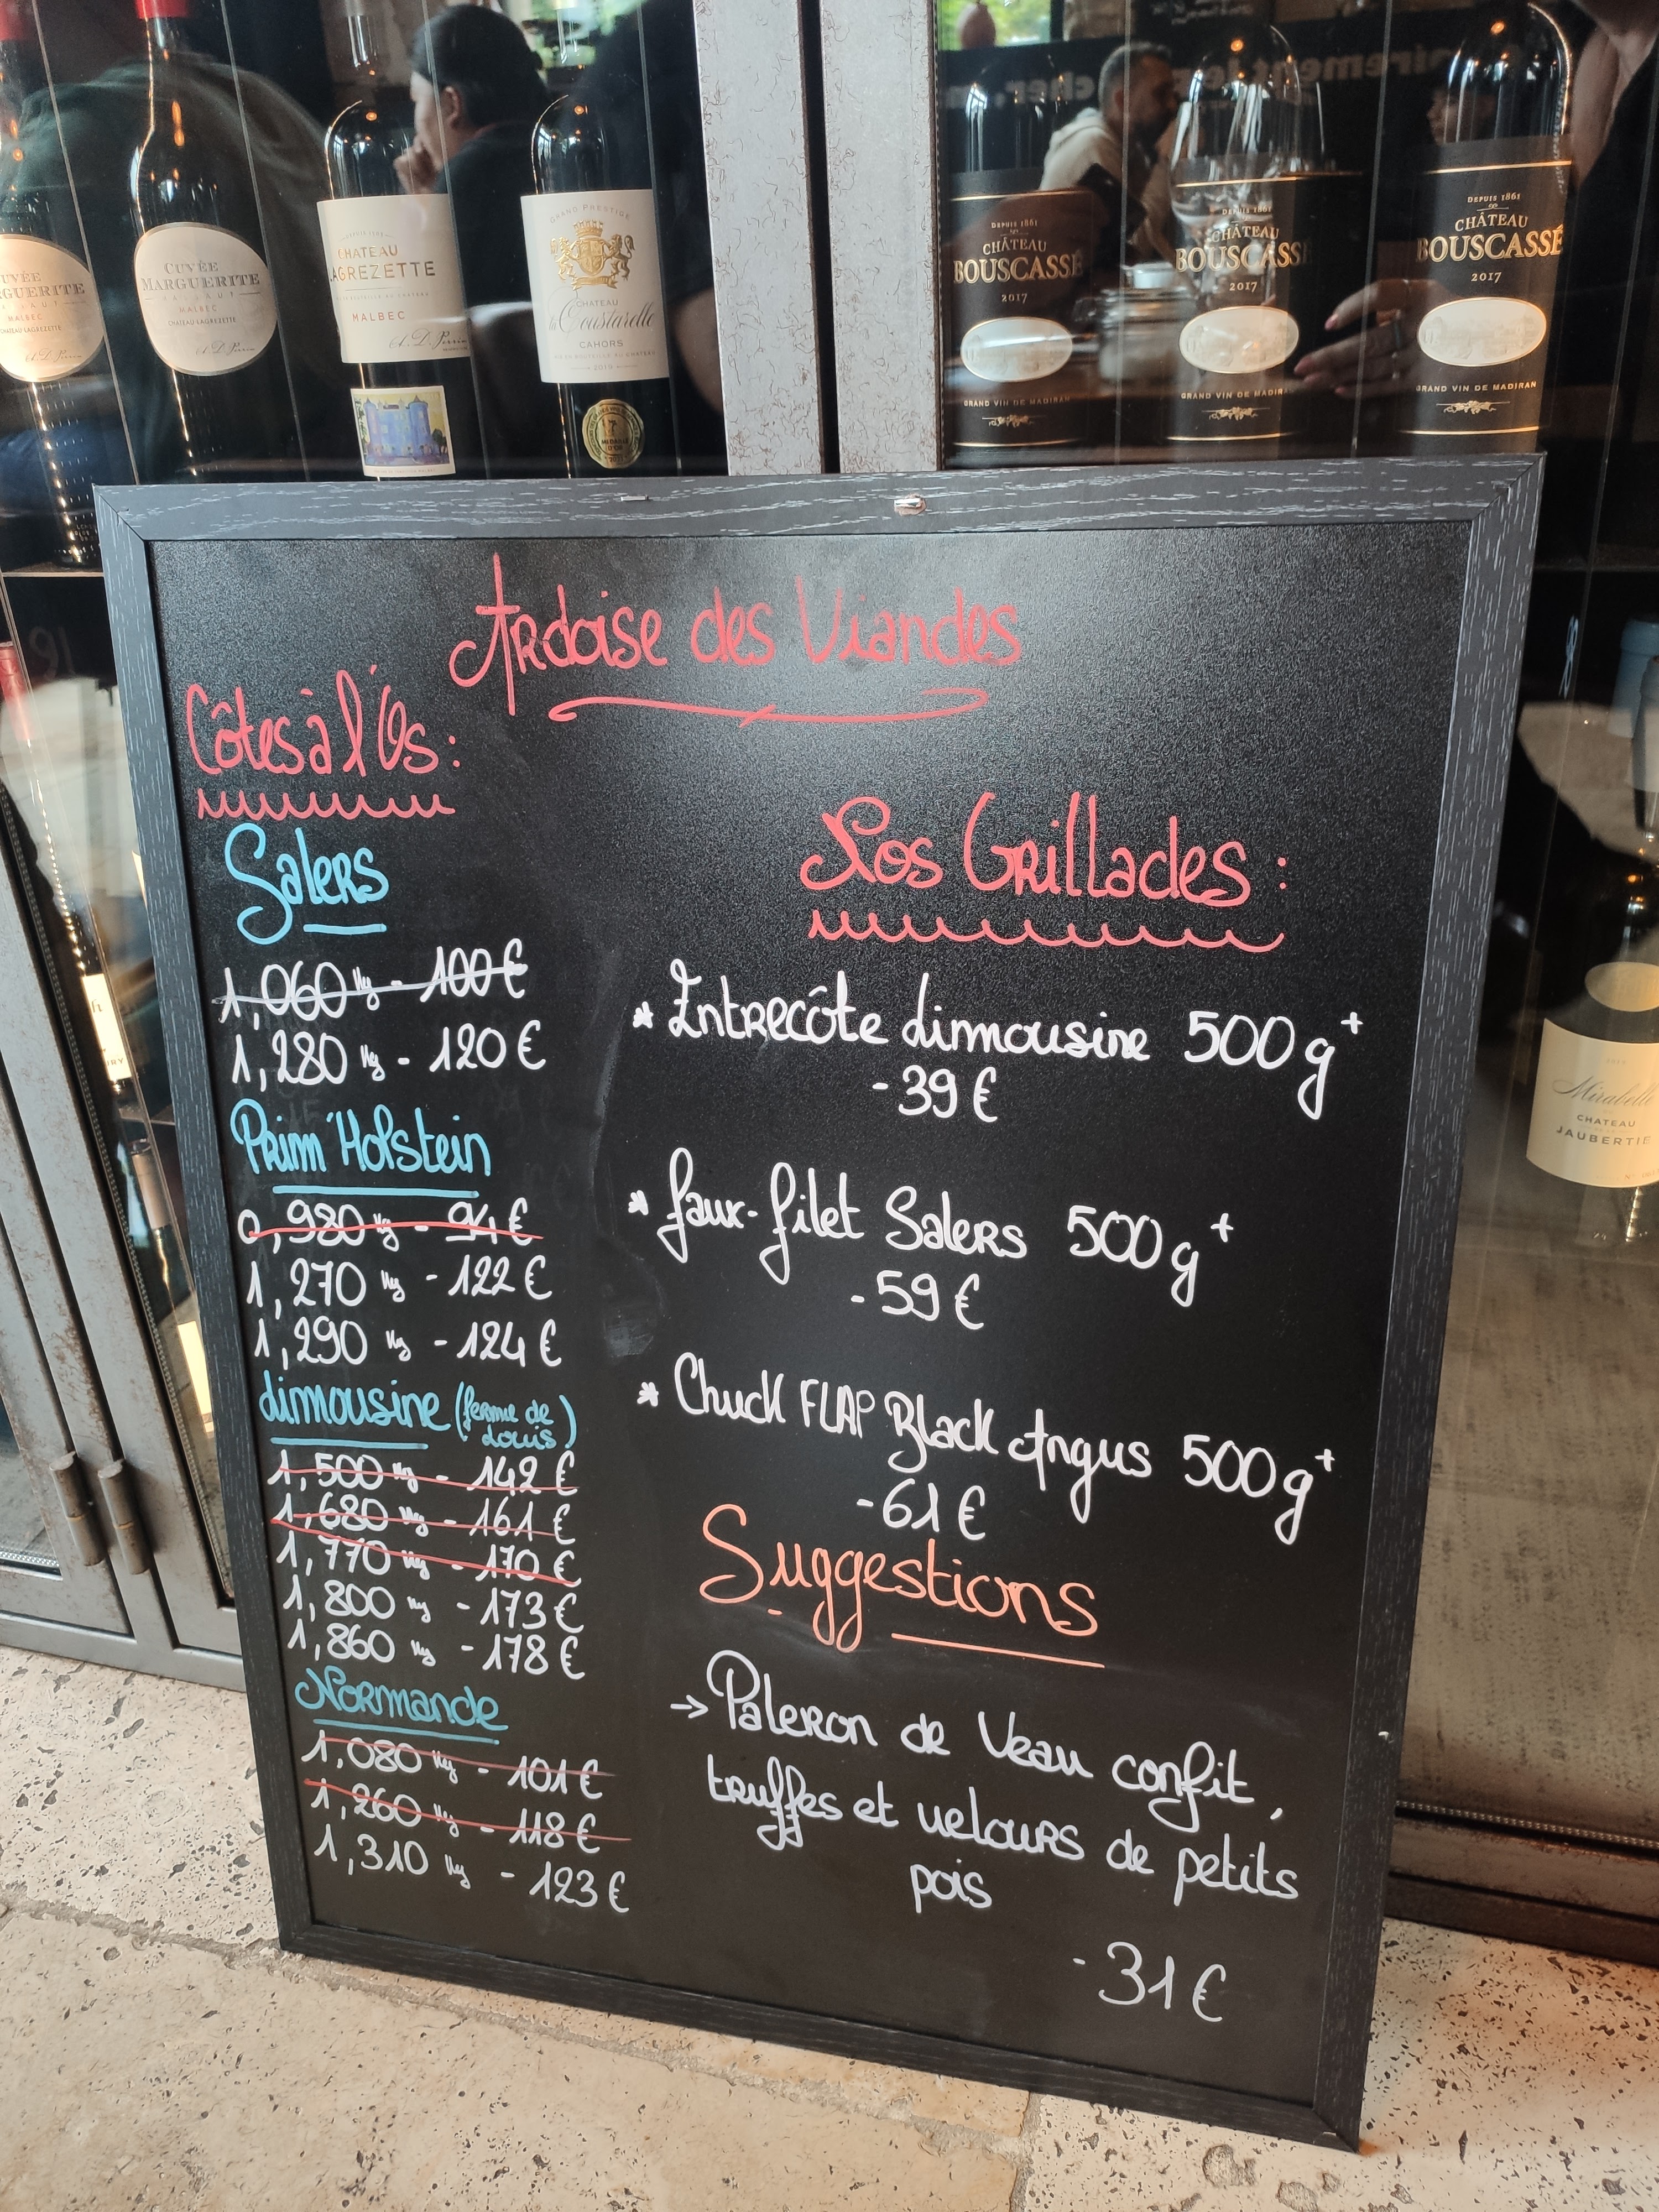 CUVÉE
MARGUERITE
MALBEC
CHATEAU LAGREZETTE
CHATEAU
LAGREZETTE
MALBEC
GRAND PRESTIGE
CHATEAU
la Coustarelle
CAHORS
2019
MEDAILLE
D'OR
DEPUIS 1861
CHÂTEAU
BOUSCASSÉ
2017
GRAND VIN DE MADIRAN
DEPUIS 1861
CHÂTEAU
BOUSCASSÉ
2017
GRAND VIN DE MADIRAN
DEPUIS 1861
CHÂTEAU
BOUSCASSÉ
2017
GRAND VIN DE MADIRAN
Ardoise des Viandes
Côtes à l'Os :
Salers
1,060 Kg - 100 €
1,280 Kg - 120 €
Prim'Holstein
0,980 Kg - 94 €
1,270 Kg - 122 €
1,290 Kg - 124 €
Limousine (ferme de
Louis)
1,500 Kg - 142 €
1,680 Kg - 161 €
1,770 Kg - 170 €
1,800 Kg - 173 €
1,860 Kg - 178 €
Normande
1,080 Kg - 101 €
1,260 Kg - 118 €
1,310 Kg - 123 €
Nos Grillades :
* Entrecôte Limousine 500 g+
- 39 €
* Faux-filet Salers 500 g+
- 59 €
* Chuck FLAP Black Angus 500 g+
- 61 €
Suggestions
→ Paleron de Veau confit,
truffes et velours de petits
pois
- 31 €
Mirabelle
CHATEAU
JAUBERTIE